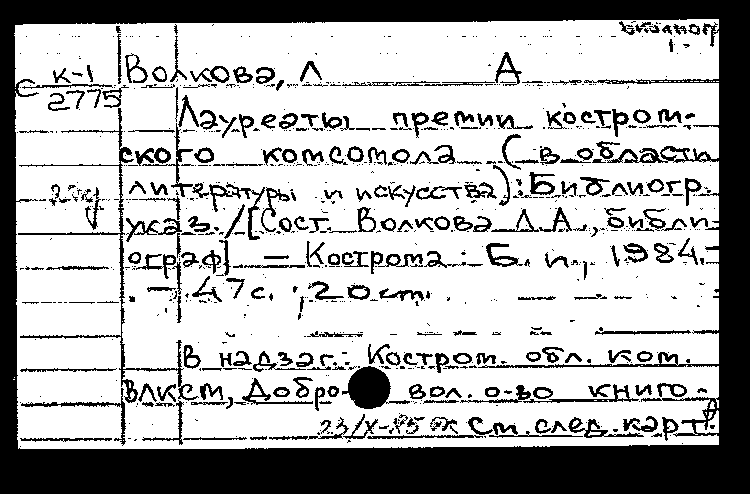 Библиогр
с К-1 Волкова, Л А
2775
Лауреаты премии костром-
ского комсомола (в области
литературы и искусства): Библиогр.
указ. / [Сост. Волкова Л.А., библи-
ограф] — Кострома: Б. и., 1984. -
. - 47 с.; 20 см.
В надзаг.: Костром. обл. ком.
ВЛКСМ, Добро- вол. о-во книго-
23/X-85 См. след. карт.